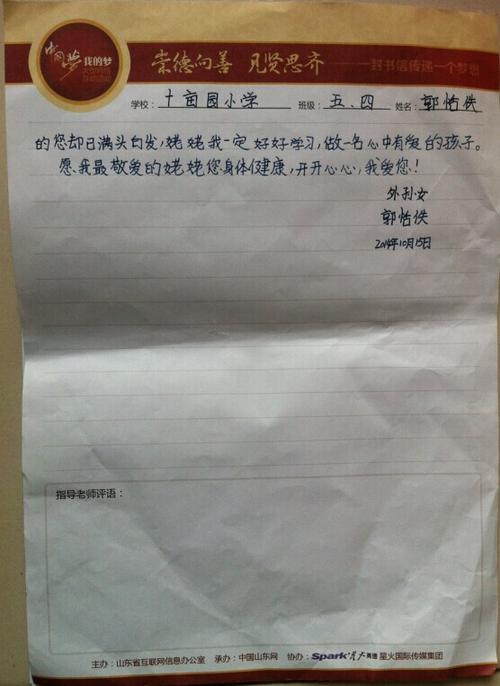 中国梦 我的梦
崇德向善 见贤思齐
一封书信传递一个梦想
学校：十亩园小学 班级：五、四 姓名：郭怡佚
的您却已满头白发，姥姥我一定好好学习，做一名心中有爱的孩子。
愿我最敬爱的姥姥您身体健康，开开心心，我爱您！
外孙女
郭怡佚
2014年10月15日
指导老师评语：
主办：山东省互联网信息办公室 承办：中国山东网 协办：Spark星火英语 星火国际传媒集团